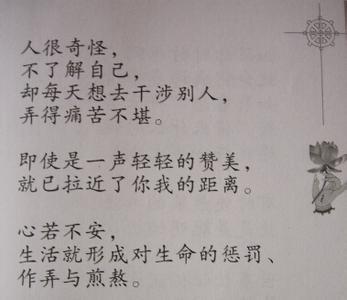 人很奇怪，
不了解自己，
却每天想去干涉别人，
弄得痛苦不堪。
即使是一声轻轻的赞美，
就已拉近了你我的距离。
心若不安，
生活就形成对生命的惩罚、
作弄与煎熬。